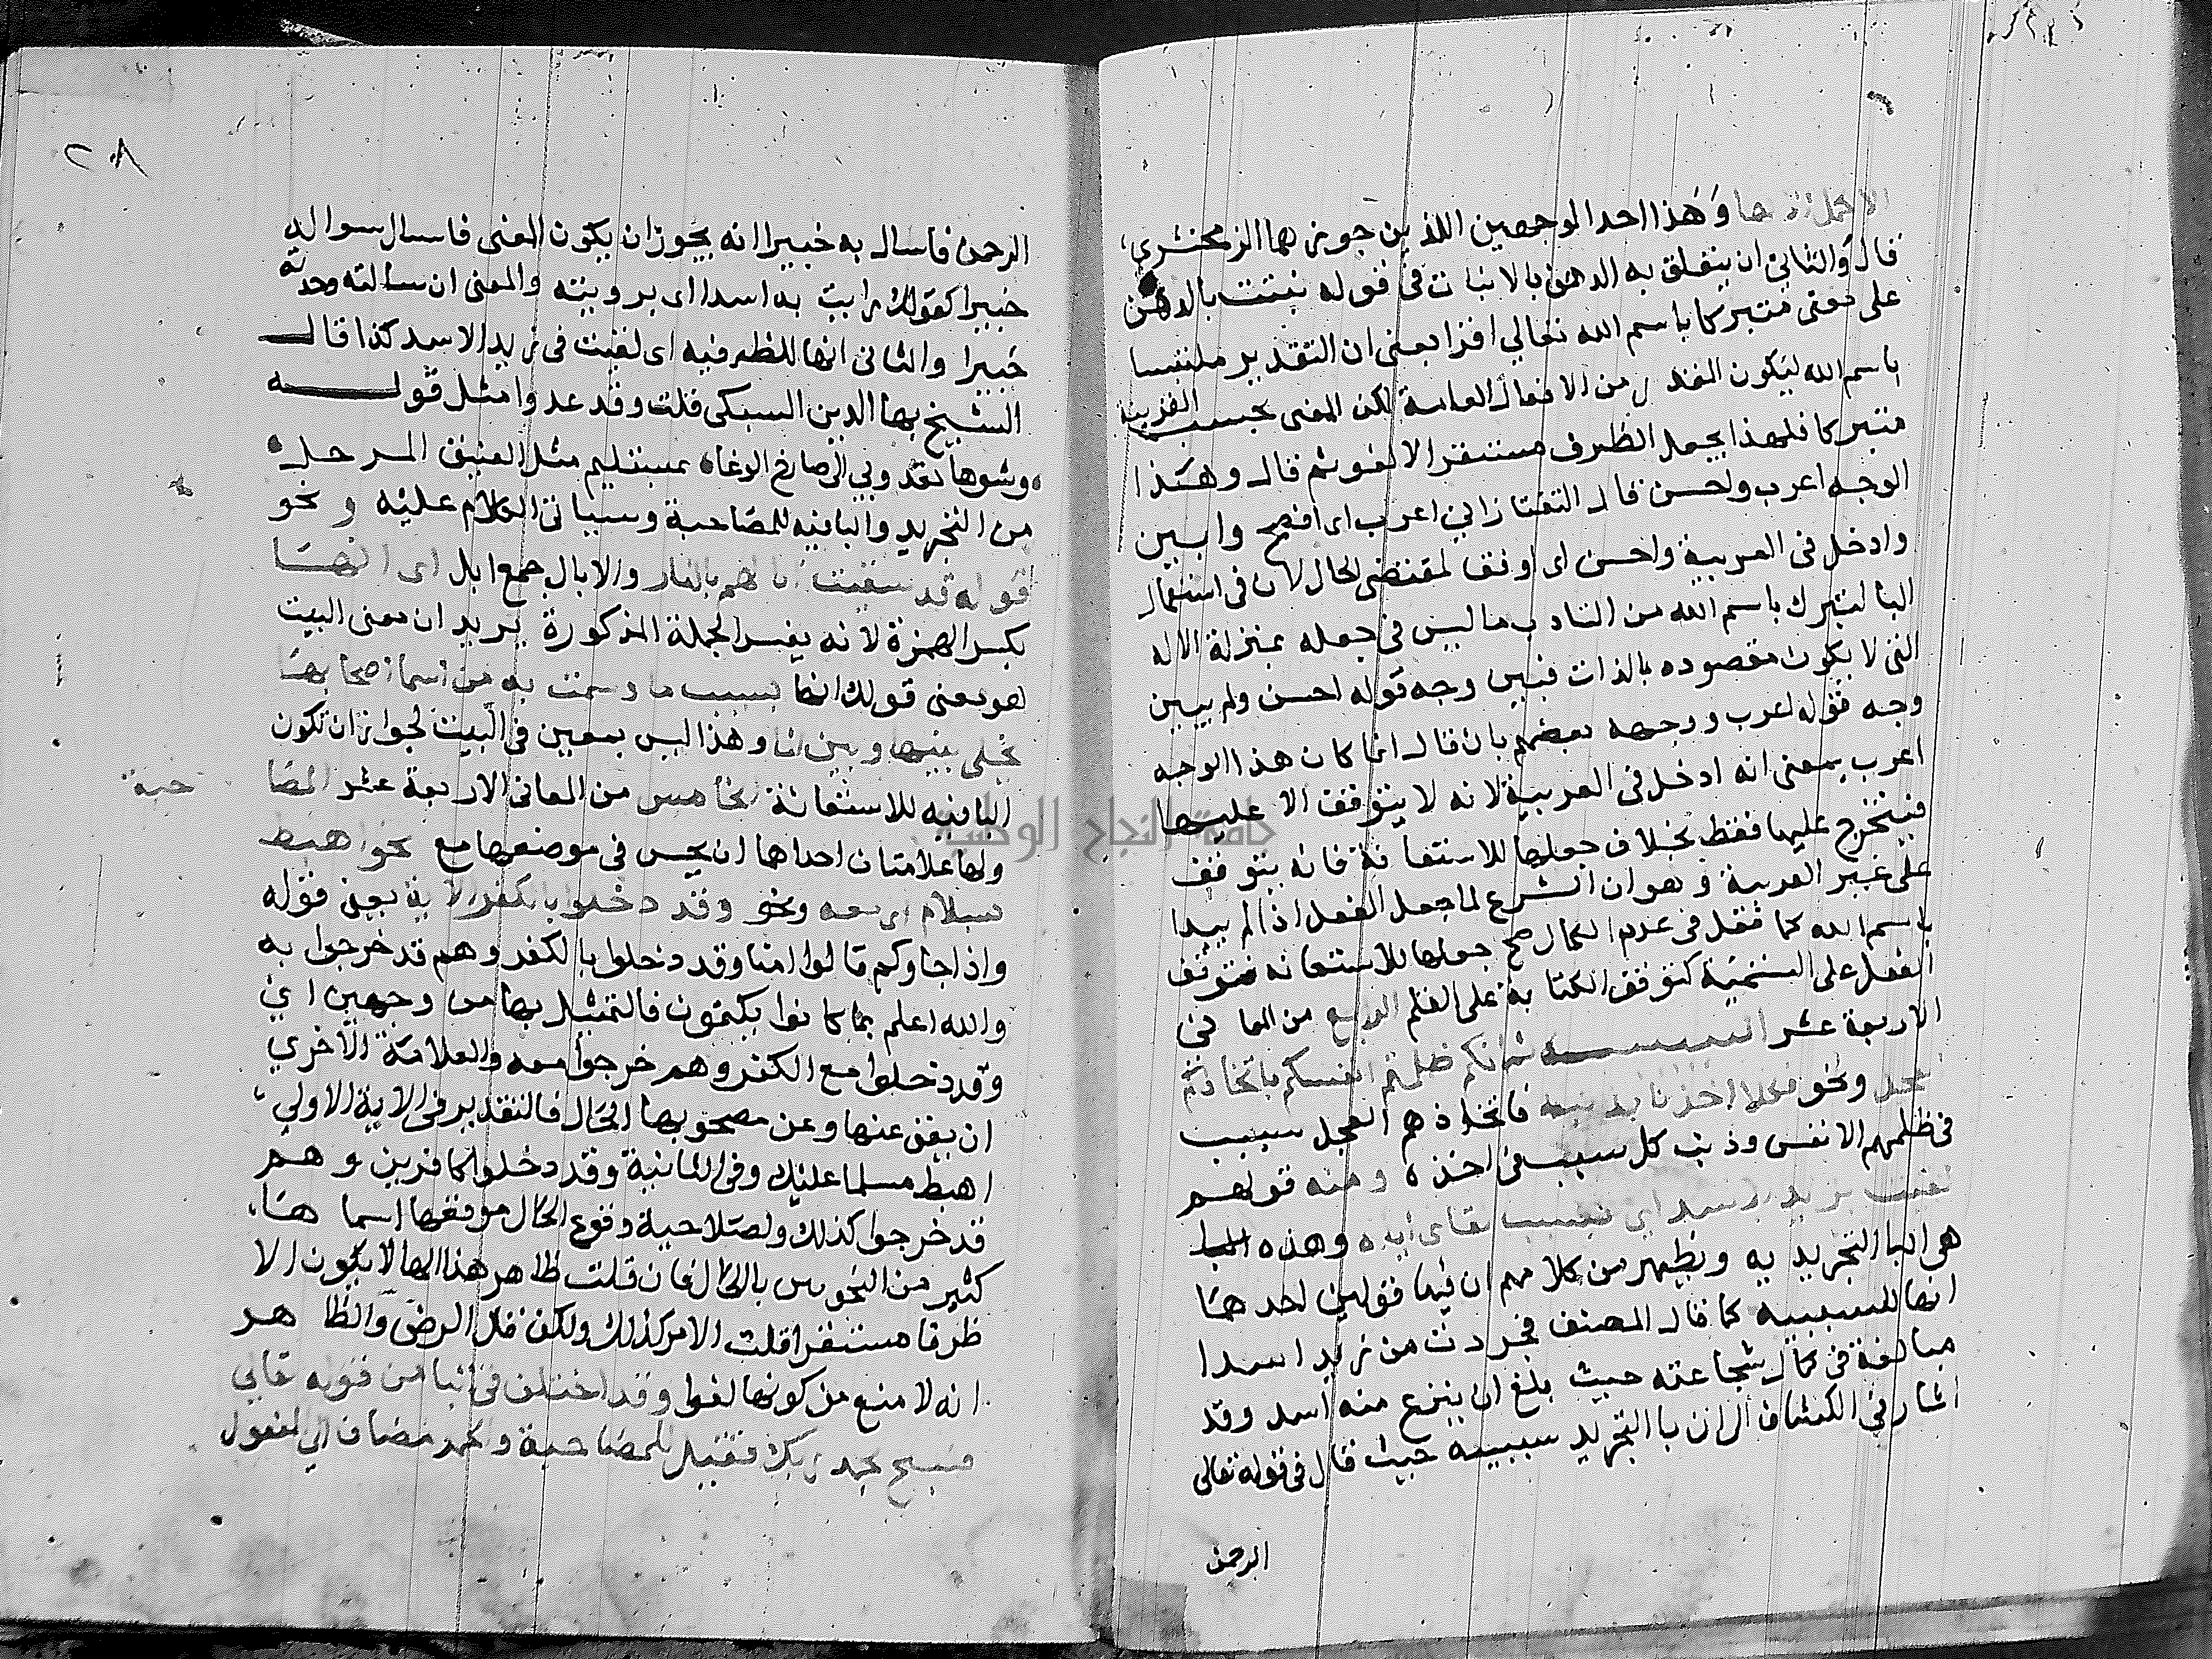 الا بها وهذا احد الوجهين اللذين جوزهما الزمخشري
قال والثاني ان يتعلق به الدهن بالانبات في قوله تنبت بالدهن
على معنى متبركا باسم الله تعالى اقرا بمعنى ان التقدير ملتبسا
باسم الله ليكون المقدر من الافعال العامة لكن المعنى بحسب القرينة
متبركا فلهذا يجعل الظرف مستقرا لا لغو ثم قال وهذا
الوجه اعرب واحسن قال التفتازاني اعرب اى افصح وابين
وادخل في العربية واحسن اى اوفق لمقتضى الحال لان في استعمال
البا لتبرك باسم الله من التادب ما ليس في جعله بمنزلة الاله
التي لا يكون مقصوده بالذات فبين وجه قوله احسن ولم يبين
وجه قوله اعرب ووجهه بعضهم بان قال انما كان هذا الوجه
اعرب بمعنى انه ادخل في العربية لانه لا يتوقف الا عليها
فيتخرج عليها فقط بخلاف جعلها للاستعانة فانه يتوقف
على غير العربية وهو ان الشرع لما جعل الفعل اذا لم يبدا
باسم الله كما فعل في عدم الكمال صح جعلها للاستعانه فتوقف
الفعل على التسمية كتوقف الكتابة على القلم الرابع من المعاني
الاربعة عشر السببية نحو انكم ظلمتم انفسكم باتخاذكم
العجل ونحو فكلا اخذنا بذنبه فاتخاذهم العجل سبب
في ظلمهم الانفس وذنب كل سبب في اخذه ومنه قولهم
لقيت بزيد الاسد اى بسبب لقاى اياه وهذه البا
هي البا التجريديه ويظهر من كلامهم ان فيها قولين احدهما
انها للسببيه كما قال المصنف فجردت من زيد اسدا
مبالغة في كمال شجاعته حيث بلغ ان ينزع منه اسد وقد
اشار في الكشاف الى ان با التجريد سببيه حيث قال في قوله تعالى
الرحمن
٢٨
الرحمن فاسال به خبيرا انه يجوز ان يكون المعنى فاسال بسواله
خبيرا كقولك رايت به اسدا اى برويته والمعنى ان سالته وجدته
خبيرا والثاني انها للظرفيه اى لقيت في زيد الاسد كذا قال
الشيخ بها الدين السبكي قلت وقد عدوا مثل قوله
وشوها تعدو بي الى صارخ الوغا بمستليم مثل الفنيق المرحل
من التجريد والبا فيه للمصاحبة وسياتي الكلام عليه ونحو
قوله قد سقيت ابالهم بالنار والابال جمع ابل اى انها
بكسر الهمزة لانه يفسر الجملة المذكورة يريد ان معنى البيت
هو معنى قولك انها بسبب ما وسمت به من اسما اصحابها
يخلى بينها وبين الما وهذا ليس بمعين في البيت لجواز ان تكون
البا فيه للاستعانة الخامس من المعاني الاربعة عشر المصا حبة
ولها علامتان احداها ان يحسن في موضعها مع نحو اهبط
بسلام اى معه ونحو وقد دخلوا بالكفر الاية يعني قوله
واذا جاوكم قالوا امنا وقد دخلوا بالكفر وهم قد خرجوا به
والله اعلم بما كانوا يكتمون فالتمثيل بها من وجهين اى
وقد دخلوا مع الكفر وهم خرجوا معه والعلامة الاخري
ان يغني عنها وعن مصحوبها الحال فالتقدير في الاية الاولى
اهبط مسلما عليك وفي الثانية وقد دخلوا كافرين وهم
قد خرجوا كذلك ولصلاحية وقوع الحال موقعها اسماها
كثير من النحويين بالحال فان قلت ظاهر هذا انها لا يكون الا
ظرفا مستقرا قلت الامر كذلك ولكن قال الرضى والظاهر
انه لا منع من كونها لغوا وقد اختلف في البا من قوله تعالى
فسبح بحمد ربك فقيل للمصاحبة والحمد مضاف الى المفعول
جامعة النجاح الوطنية